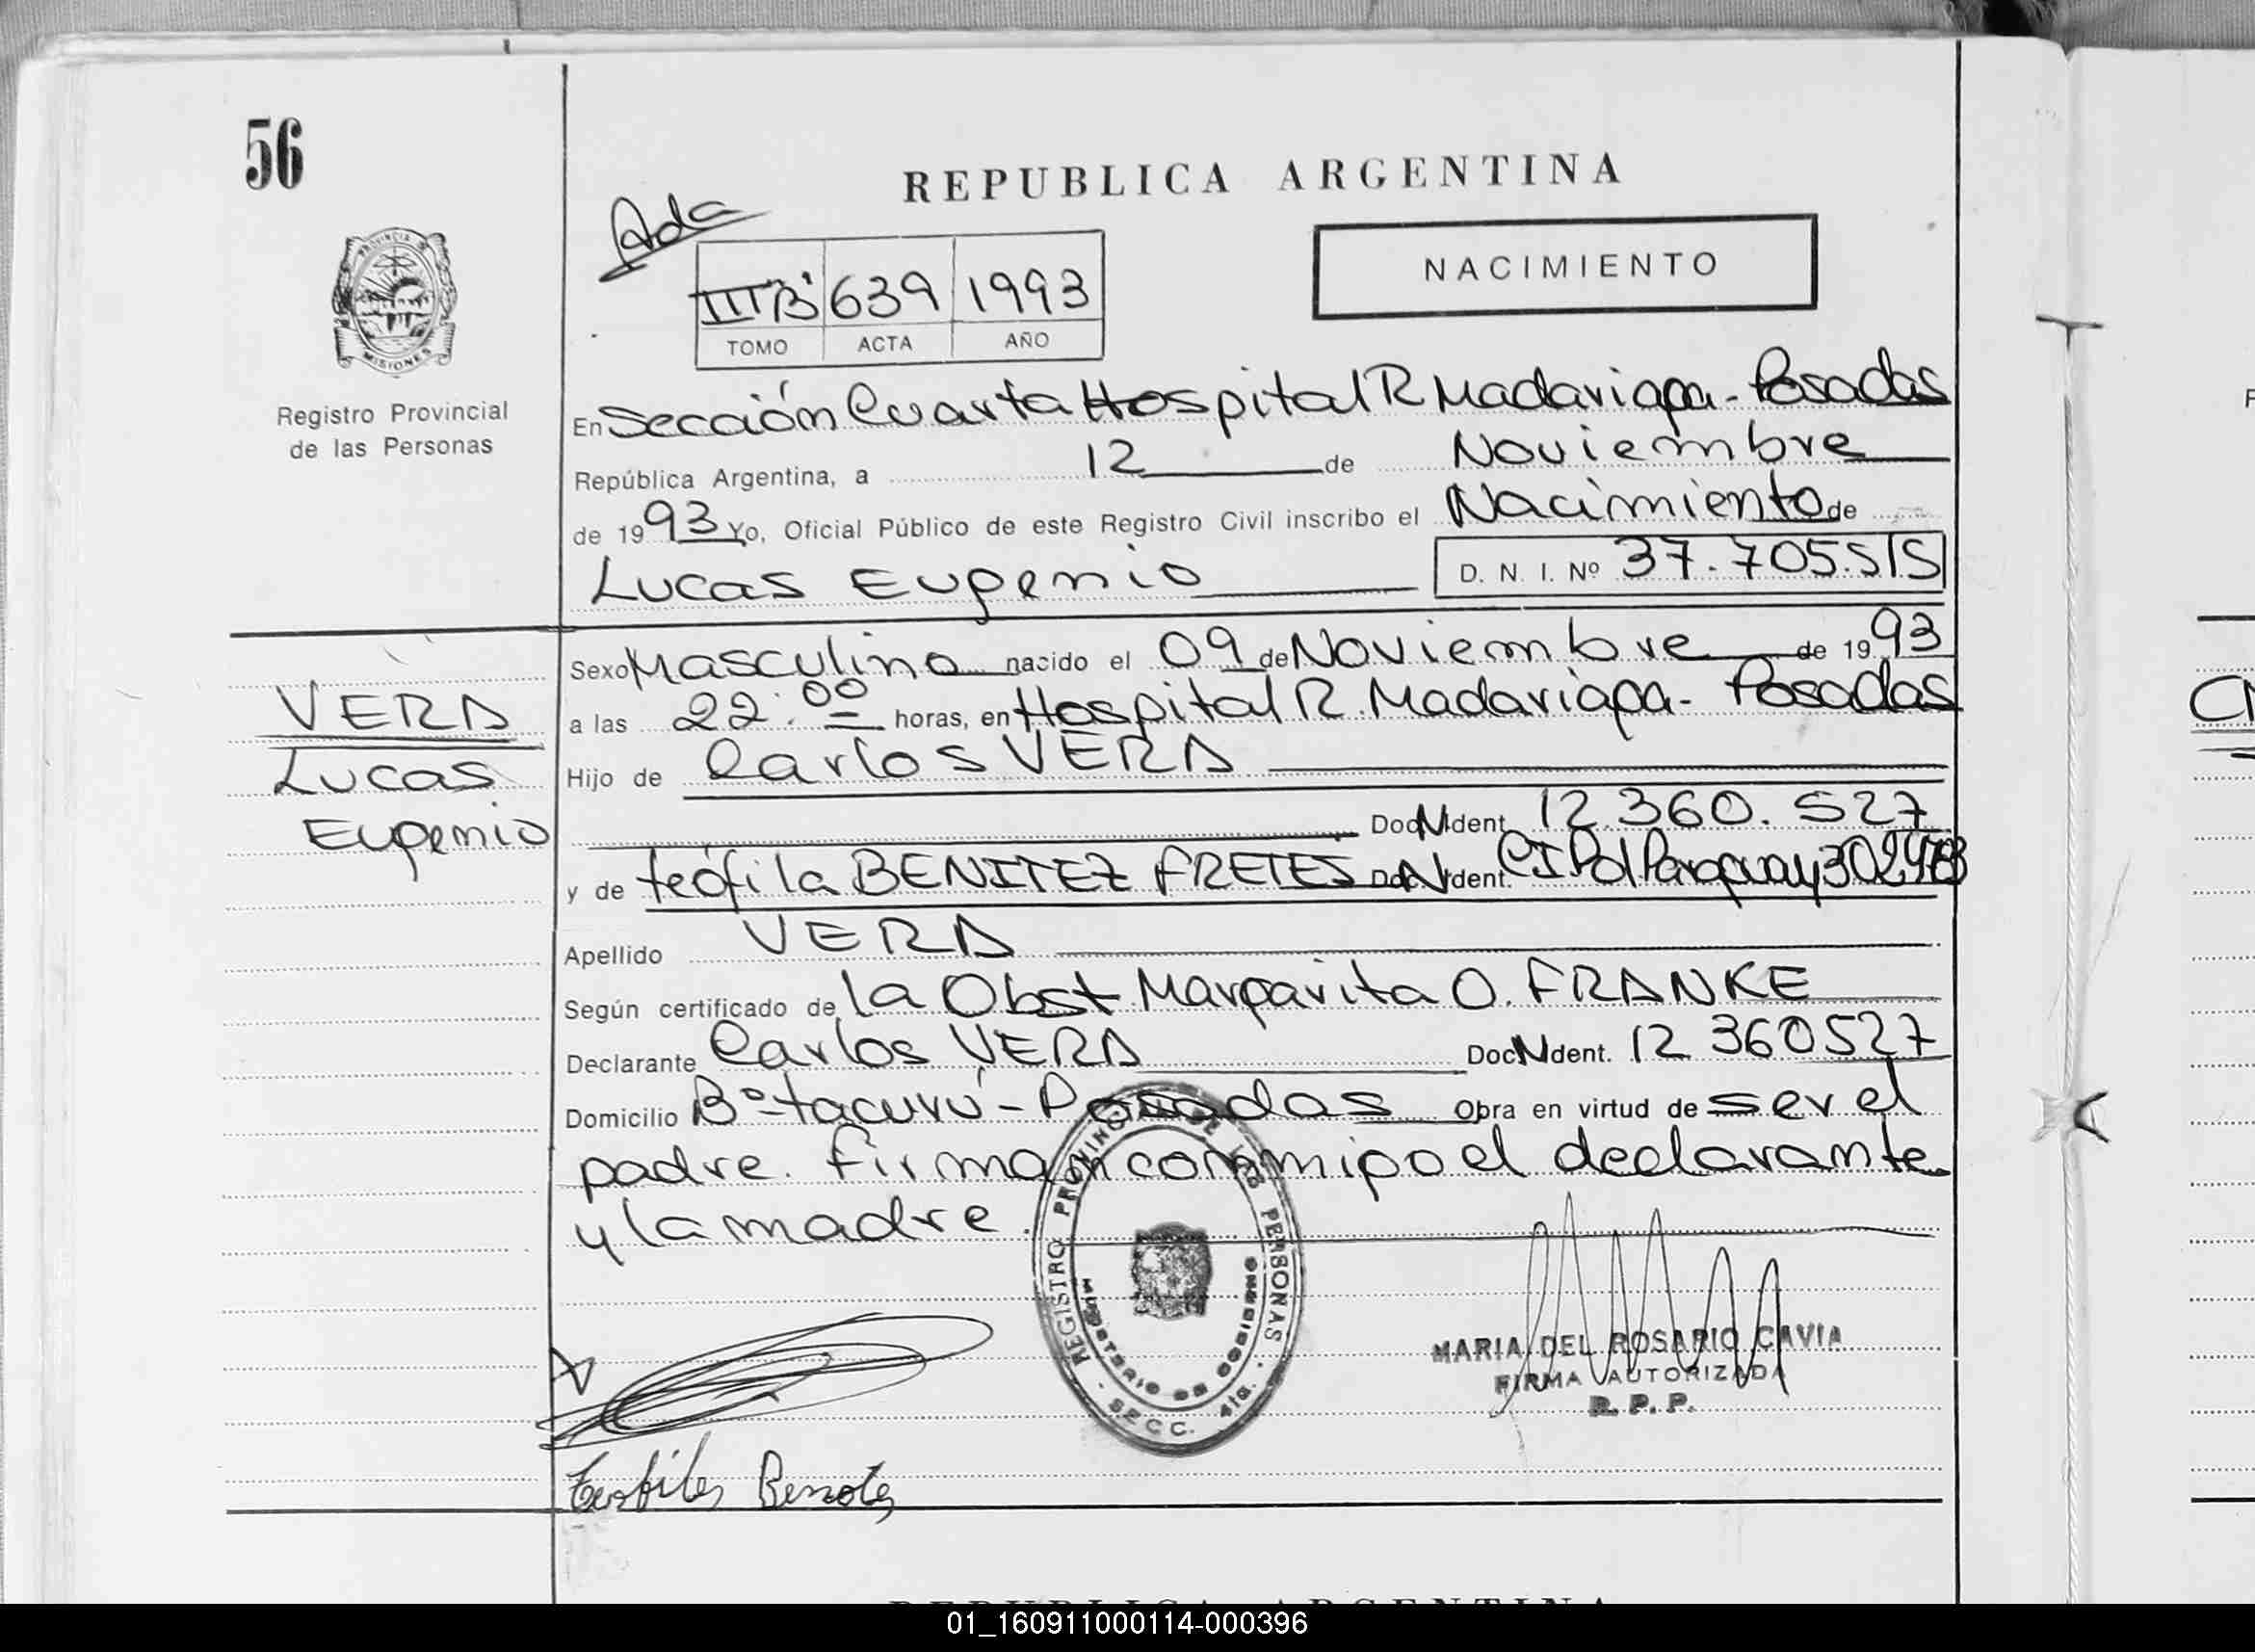 56
REPUBLICA ARGENTINA
Ada
NACIMIENTO
III "B" 639 1993
TOMO ACTA AÑO
PROVINCIA DE MISIONES
Registro Provincial
de las Personas
En Sección Cuarta Hospital R Madariaga - Posadas
República Argentina, a 12 de Noviembre
de 1993 Yo, Oficial Público de este Registro Civil inscribo el Nacimiento de
Lucas Eugenio D. N. I. Nº 37.705.515
Sexo Masculino nacido el 09 de Noviembre de 1993
VERA
a las 22:00 horas, en Hospital R. Madariaga - Posadas
Lucas
Hijo de Carlos VERA
Eugenio
Doc. N. Ident. 12.360.527
y de teófila BENITEZ FRETES Doc. N. Ident. CI Pol Paraguay
Apellido VERA
Según certificado de la Obst Margarita O. FRANKE
Declarante Carlos VERA Doc. N. Ident. 12 360527
Domicilio Bº tacurú - Posadas Obra en virtud de ser el
padre. firman conmigo el declarante
y la madre.
REGISTRO PROVINCIAL DE LAS PERSONAS
MINISTERIO DE GOBIERNO
SECC. 4ta.
MARIA DEL ROSARIO CAVIA
FIRMA AUTORIZADA
R. P. P.
REPUBLICA ARGENTINA
01_160911000114-000396